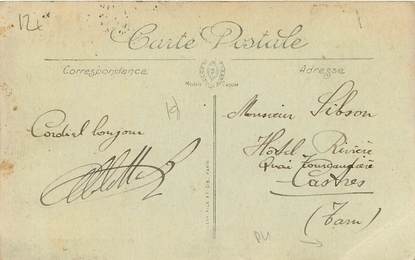 12x
Carte Postale
Correspondance
Adresse
Cordial bonjour
Monsieur Sibson
Hotel Rivière
Quai Tourcaudière
Castres
(Tarn)